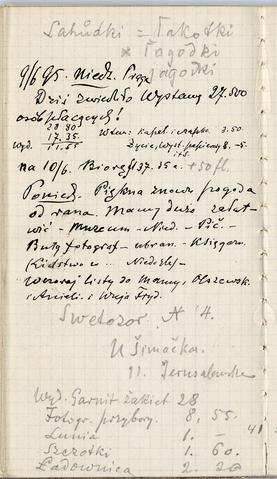 Sahůdki = Łakotki
× Łagodki
jagodki
9/6 95. Niedz. Praga
Dziś zwiedziło Wystawę 27.500
osób płacących!
28 80
17.35
Wyd. 11.45
Wtem: kapel. i czapka 3.50.
Życie, Wyst. papierosy 8.-5.
na 10/6. Biorę fl 37.35 a. +50 fl.
Poniedz. Piękna znowu pogoda
od rana. Mamy dużo załat-
wić - Muzeum - Nied. - Pić. -
Buty fotograf - ubran. - Księgarn.
w ... Niedziel -
Wczoraj listy do Mamy, Olszewsk.
i Anieli. i Wuja Fryd.
Swetozor N 4.
U Šimáčka.
11. Jerusalemska
Wyd. Garnit żakiet 28
Fotogr. przybory. 8, 55.
Lunia 1. -
Szczotki 1. 60.
Ładownica 2. 20
41